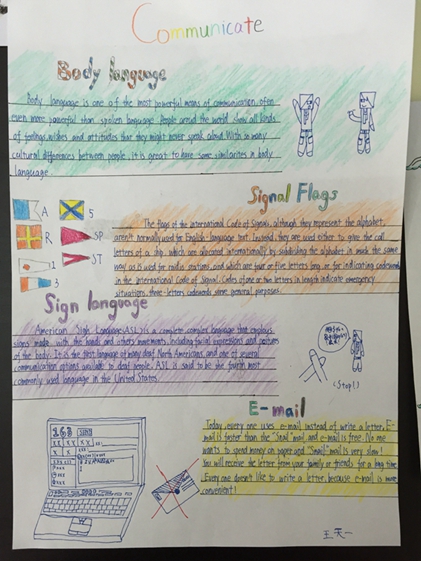 Communicate
Body language
Body language is one of the most powerful means of communication, often
even more powerful than spoken language. People around the world show all kinds
of feelings, wishes and attitudes that they might never speak aloud. With so many
cultural differences between people, it is great to have some similarities in body
language
Signal Flags
A 5
R SP
1 ST
3
The flags of the International Code of Signals, although they represent the alphabet,
aren't normally used for English-language text. Instead, they are used either to give the call
letters of a ship, which are allocated internationally by subdividing the alphabet in much the same
way as is used for radio stations, and which are four or five letters long, or for indicating codewords
in the International Code of Signal. Codes of one or two letters in length indicate emergency
situations, three-letters codewords some general purposes.
Sign language
American Sign Language(ASL) is a complete, complex language that employs
signs made with the hands and others movements, including facial expressions and postures
of the body. It is the first language of many deaf North Americans, and one of several
communication options available to deaf people. ASL is said to be the fourth most
commonly used language in the United States.
(Stop!)
E-mail
Today, every one uses e-mail instead of write a letter. E-
mail is faster than the "Snail" mail and e-mail is free. No one
wants to spend money on paper and "Snail" mail is very slow!
You will receive the letter from your family or friends for a long time.
Every one doesn't like to write a letter, because e-mail is more
convenient!
163
王天一